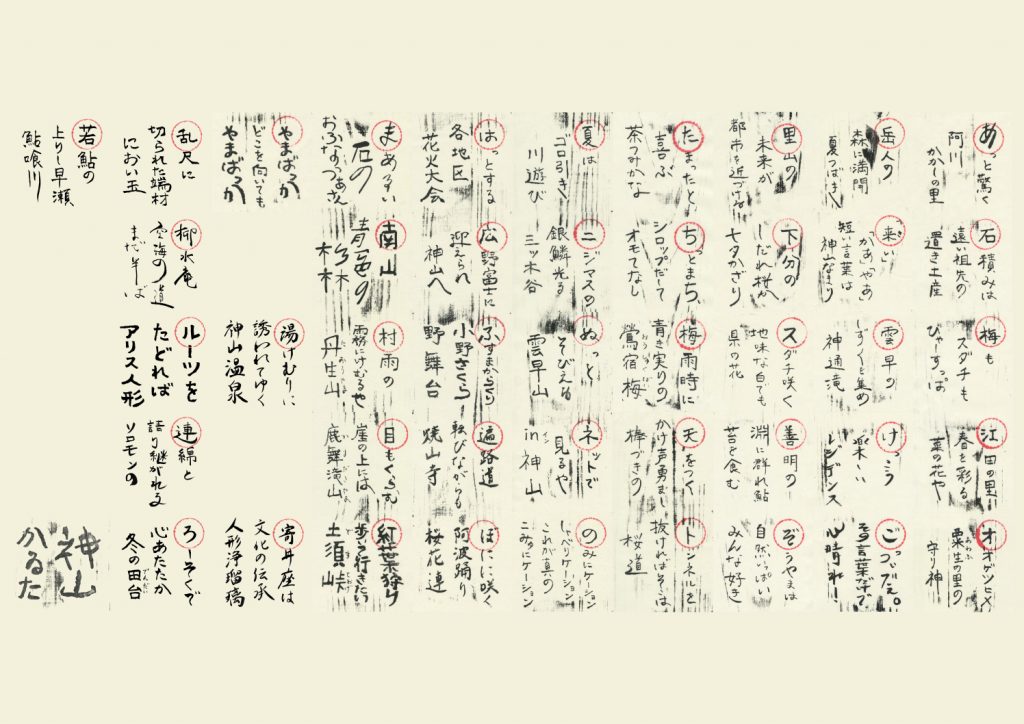 あっと驚く
阿川
かかしの里
石積みは
遠い祖先の
置き土産
梅も
スダチも
ひゃーすっぱ
江田の里
春を彩る
菜の花や
オオゲツヒメ
粟生の里の
守り神
岳人の
森に満開
夏つばき
来い
短い言葉は
神山なまり
雲早の
しずくを集め
神通滝
けっこう
楽しい
レジデンス
ごっついだぇ。
心晴れ
里山の
未来が
都市を近づける
下分の
しだれ桜が
七夕かざり
スダチ咲く
地味な白でも
県の花
善明の
淵に群れ鮎
苔を食む
ぞうやまは
自然いっぱい
みんな好き
たまったと
喜ぶ
茶つみかな
ちっとまち
シロップだして
オモてなし
梅雨時に
青き実りの
鶯宿梅
天をつく
かけ声勇まし
棒づきの
トンネルを
抜ければそこは
桜道
夏は
ゴロ引き
川遊び
ニジマスの
銀鱗光る
三ッ木谷
ぬっと
そびえる
雲早山
ネットで
見るや
in 神山
のみにケーション
しゃべりケーション
これが真の
こみゅにケーション
はっとする
各地区
花火大会
広野富士に
迎えられ
神山へ
ふすまからくり
小野さくら
野舞台
遍路道
転びながらも
焼山寺
ほにほに咲く
阿波踊り
桜花連
まあるい
石の
おふなつぁさん
南山
青色の
杉林
村雨の
霧にけむるや
丹生山
目もくらむ
崖の上には
底舞滝山
紅葉狩り
歩って行きたい
土須峠
やまばっか
どこを向いても
やまばっか
湯けむりに
誘われてゆく
神山温泉
寄井座は
文化の伝承
人形浄瑠璃
乱尺に
切られた端材
におい玉
柳水庵
空海の道
まだ半ば
ルーツを
たどれば
アリス人形
連綿と
語り継がれる
ソロモンの
ろーそくで
心あたたか
冬の田台
若鮎の
上りし早瀬
鮎喰川
神山
かるた